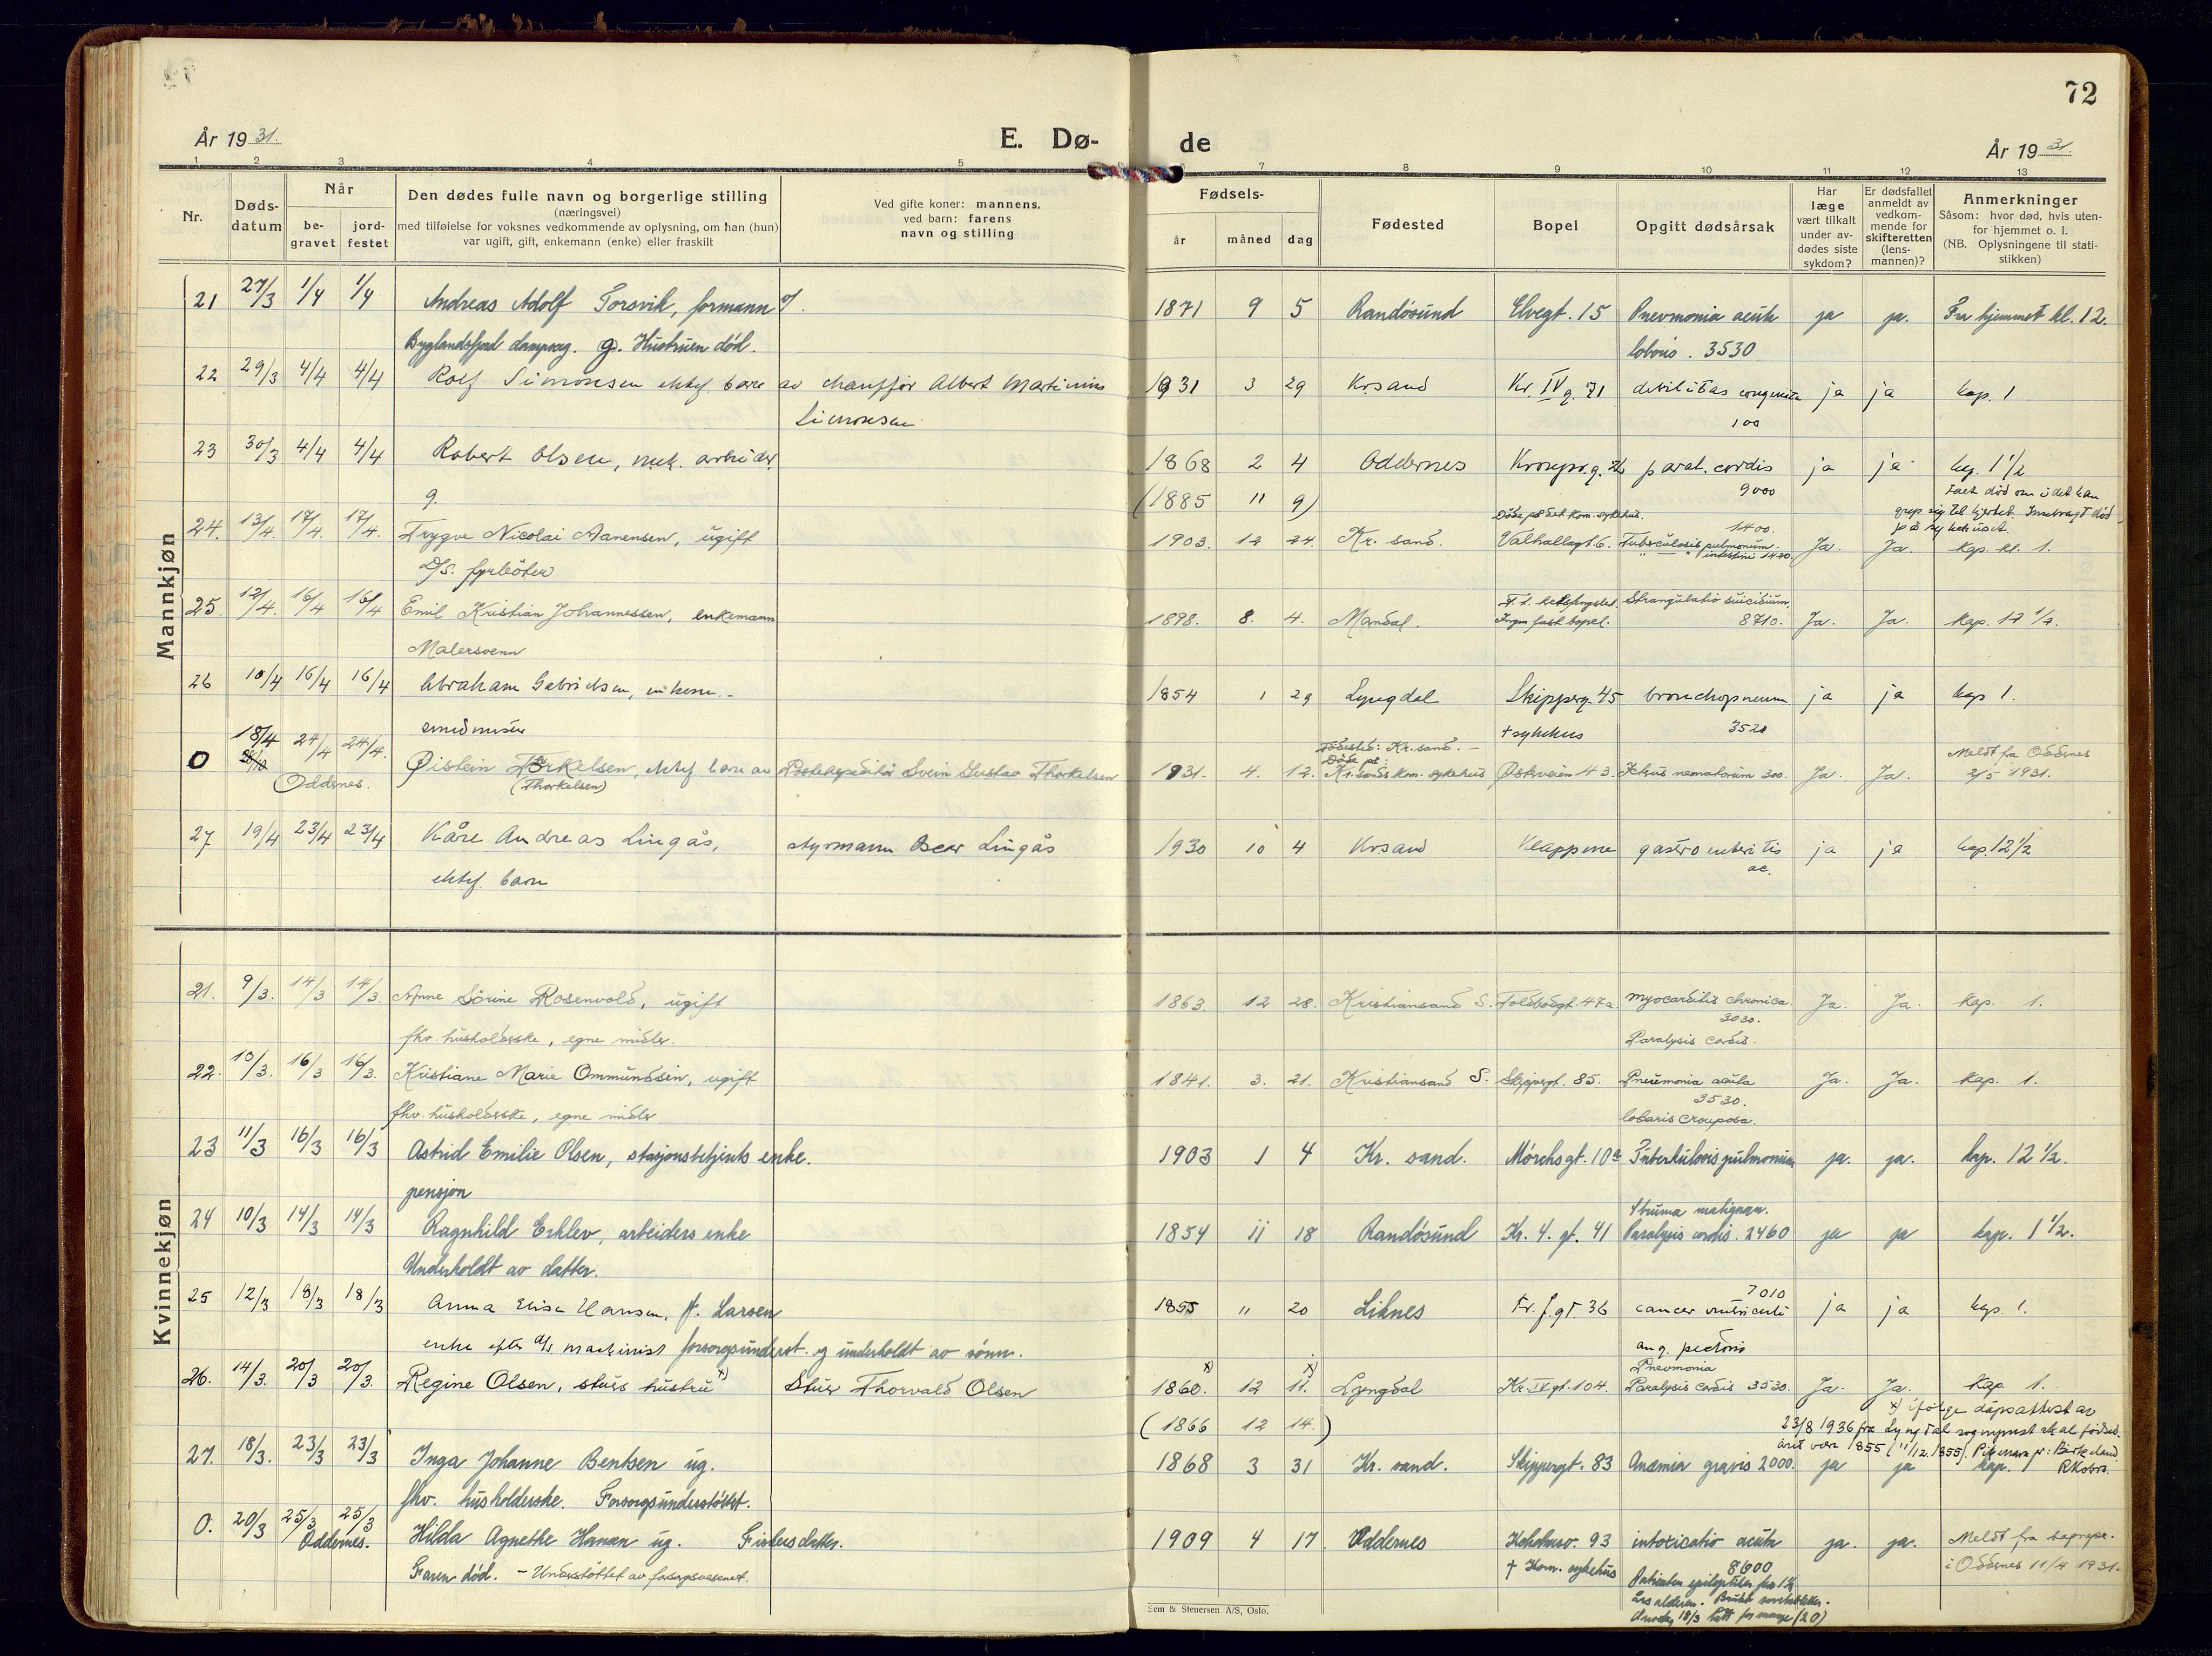 72
År 1931.
E. Dø-
de
År 1931.
1 2 3 4 5 6 7 8 9 10 11 12 13
Nr.
Døds-
datum
Når
be-
gravet
jord-
festet
Den dødes fulle navn og borgerlige stilling
(næringsvei)
med tilføielse for voksnes vedkommende av oplysning, om han (hun)
var ugift, gift, enkemann (enke) eller fraskilt
Ved gifte koner: mannens,
ved barn: farens
navn og stilling
Fødsels-
år
måned
dag
Fødested
Bopel
Opgitt dødsårsak
Har
læge
vært tilkalt
under av-
dødes siste
sykdom?
Er dødsfallet
anmeldt av
vedkom-
mende for
skifteretten
(lens-
mannen)?
Anmerkninger
Såsom: hvor død, hvis uten-
for hjemmet o. l.
(NB. Oplysningene til stati-
stikken)
Mannkjøn
21 27/3 1/4 1/4 Andreas Adolf Torsvik, formann 1871 9 5 Randøsund Elvegt. 15 Pnevmonia acuta ja ja. Fra hjemmet kl. 12.
Byglandsfjord dampsag. g. Hustruen død. 3530
22 29/3 4/4 4/4 Rolf Simonsen ektef. barn av chauffør Albert Martinius 1931 3 29 Krsand Kr. IV g. 71 debilitas congenita ja ja kap. 1
Simonsen 100
23 30/3 4/4 4/4 Robert Olsen, mek. arbeider, 1868 2 4 Oddernes paral. cordis ja ja kap. 1 1/2
g. (1885 11 9) 9000
Døde på det kom. sykehus.
24. 13/4. 17/4. 17/4. Trygve Nicolai Aanensen, ugift 1903. 12 24. Kr. sand. Valhallagt. 6. Tuberculosis pulmonum. 1400. Ja. Ja. Kap. kl. 1.
D/S. fyrbøter
25. 12/4. 16/4 16/4 Emil Kristian Johannessen, enkemann 1898. 8. 4. Mandal. Ingen fast bopel. Strangulatio suicidium. 8710. Ja. Ja. Kap. 12 1/2.
Malersvenn
26 10/4 16/4 16/4 Abraham Gabrielsen, enkem. 1854 1 29 Lyngdal Skipperg. 45 bronchopneum ja ja kap 1.
smedmester + sykehus 3520
0 18/4 24/4 24/4. Øistein Torkelsen, ektef. barn av Postekspeditør Svein Gustav Thorkelsen 1931. 4. 12. Fødested: Kr.sand. Døde på: Kr.sands kom. sykehus Østerveien 43. Icterus neonatorum 300. Ja. Ja. Meldt fra Oddernes
Oddernes. (Thorkelsen) 2/5 1931.
27 19/4 23/4 23/4 Kåre Andreas Lingås, styrmann Oscar Lingås 1930 10 4 Krsand Klappene gastroenteritis ja ja kap. 12 1/2
ektef. barn ac.
Kvinnekjøn
21. 9/3. 14/3 14/3. Anne Sørine Rosenvold, ugift 1863. 12 28. Kristiansand S. Toldbodgt. 47a. Myocarditis chronica. Ja. Ja. Kap. 1.
3030.
fhv. husholderske, egne midler. Paralysis cordis.
22. 10/3. 16/3 16/3. Kristiane Marie Ommundsen, ugift 1841. 3. 21. Kristiansand S. Skippergt. 85. Pneumonia acuta Ja. Ja. Kap. 1.
3530.
fhv. husholderske, egne midler lobaris crouposa.
23 11/3 16/3 16/3 Astrid Emilie Olsen, stasjonsbetjents enke. 1903 1 4 Kr. sand. Mørchsgt. 10a Tuberkulosis pulmonum ja. ja. kap. 12 1/2.
pensjon
24 10/3 14/3 14/3 Ragnhild Erklev, arbeiders enke 1854 11 18 Randøsund Kr. 4. gt. 41 Struma malignar. Paralysis cordis. 2460 ja ja kap. 1 1/2.
Underholdt av datter.
25 12/3 18/3 18/3 Anna Elise Hansen, f. Larsen 1855 11 20 Liknes Fr. f. gt 36 7010 cancer ventriculi ja ja kap. 1.
enke efter d/s maskinist forsorgsunderst. og underholdt av sønn. ang. pectoris
26. 14/3. 20/3 20/3. Regine Olsen, stuers hustru x) Stuer Thorvald Olsen 1860. x) 12 11. x) Lyngdal Kr. IV gt. 104. Pneumonia Paralysis cordis 3530. Ja. Ja. Kap. 1.
(1866 12 14.) x) ifølge dåpsattest av
23/8 1936 fra Lyngdal sogneprest skal fødsels-
året være 1855 (11/12. 1855). Birkeland
27. 18/3. 23/3 23/3. Inga Johanne Bentsen ug. 1868 3 31 Kr. sand. Skippergt. 83 Anæmia gravis 2000. ja ja kap.
fhv. husholderske. Forsorgsunderstøttet.
0. 20/3 25/3 25/3 Hilda Agnethe Hansen ug. Fiskers datter. 1909 4 17. Oddernes 93 intoxicatio acuta ja. ja. Meldt fra sognepr.
Oddernes. Faren død. - Understøttet av forsorgsvesenet. + Kom. sykehus 8600 i Oddernes 11/4 1931.
Sem & Stenersen A/S, Oslo.